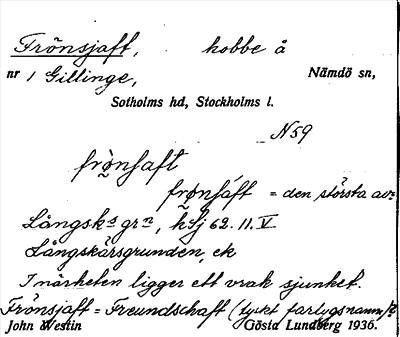 Frönsjaft, kobbe å
nr 1 Gillinge, Nämdö sn,
Sotholms hd, Stockholms l.
N 59
frö̀nsaft
frönsáft = den största av
Långsksgrn, kSj 62. 11. V
Långskärsgrunden, ek
I närheten ligger ett vrak sjunket.
Frönsjaft = Freundschaft (tyskt fartygsnamn)?
John Westin Gösta Lundberg 1936.